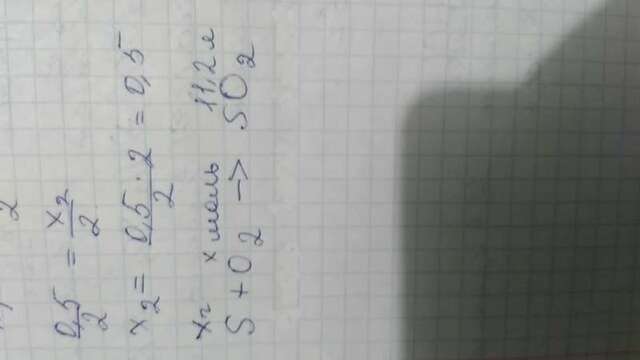 2
0,5/2 = x₂/2
x₂ = 0,5 · 2/2 = 0,5
xг x моль 11,2 л
S + O₂ -> SO₂